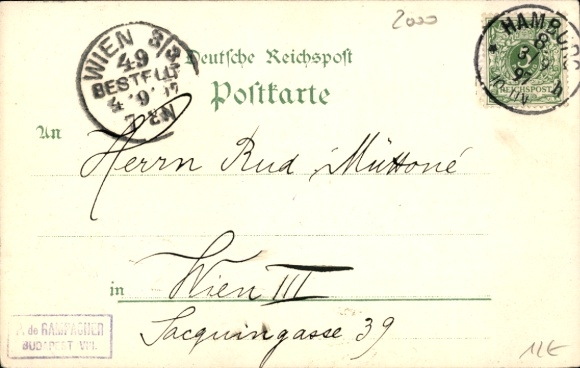 2000
WIEN 3/3
49
BESTELLT
4 9 97
7 8 N
Deutsche Reichspost
Postkarte
* HAMBURG
3 8
9
97
REICHSPOST
An
Herrn Rud Müttoné
in Wien III
Jacquingasse 39
de RAMPACHER
BUDAPEST VIII.
12€